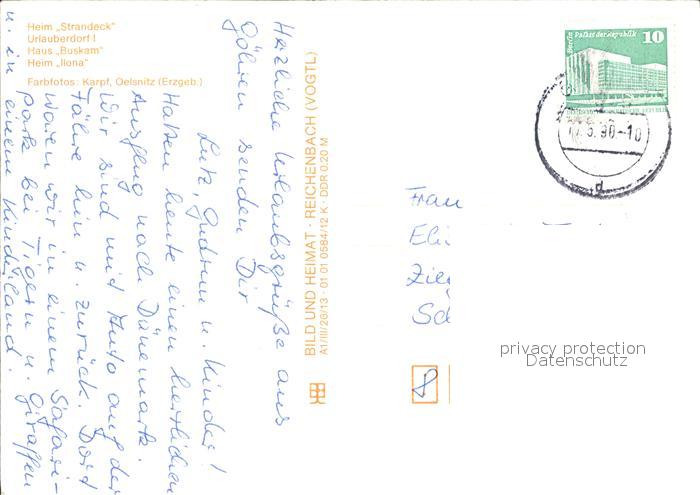 Heim „Strandeck"
Urlauberdorf I
Haus „Buskam"
Heim „Ilona"
Farbfotos: Karpf, Oelsnitz (Erzgeb.)
Herzliche Urlaubsgrüße aus
Göhren senden Dir
Lutz, Gudrun u. Kinder!
Haben heute einen herrlichen
Ausflug nach Dänemark.
Wir sind mit Auto auf der
Fähre hin u. zurück. Dort
waren wir in einem Safari-
park bei Tigern u. Giraffen
u. in einem Kinderland.
BILD UND HEIMAT · REICHENBACH (VOGTL)
A1/III/26/13 · 01 01 0584/12 K · DDR 0,20 M
Berlin Palast der Republik
10
DEUTSCHE DEMOKRATISCHE REPUBLIK
.5.90-10
d
Frau
8
privacy protection
Datenschutz